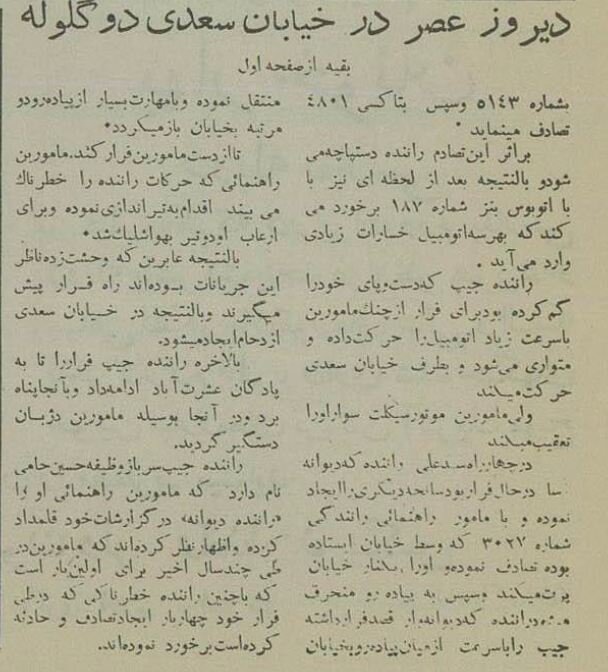 دیروز عصر در خیابان سعدی دو گلوله
بقیه از صفحه اول
بشماره ۵۱۴۳ وسپس بتاکسی ۴۸۰۱
تصادف مینماید •
براثر این تصادم راننده دستپاچه می
شود و بالنتیجه بعد از لحظه ای نیز با
با اتوبوس بنز شماره ۱۸۷ برخورد می
کند که بهر سه اتومبیل خسارات زیادی
وارد می آید .
راننده جیپ که دست وپای خودرا
گم کرده بود برای فرار از چنك مامورین
باسرعت زیاد اتومبیل را حرکت داده و
متواری می شود و بطرف خیابان سعدی
حرکت میکند
ولی مامورین موتورسیکلت سوار اورا
تعقیب میکنند
درچهارراه سیدعلی راننده که دیوانه
سا درحال فرار بود سانحه دیگری را ایجاد
نموده و با مامور راهنمائی رانندگی
شماره ۳۰۲۷ که وسط خیابان ایستاده
بوده تصادف نموده و اورا بکنار خیابان
پرت میکند وسپس به پیاده رو منحرف
میشود راننده که دیوانه وار قصد فرار داشته
جیپ را باسرعت از میان پیاده رو بخیابان
منتقل نموده وبامهارت بسیار از پیاده رو دو
مرتبه بخیابان باز میگردد•
تا از دست مامورین فرار کند. مامورین
راهنمائی که حرکات راننده را خطرناك
می بینند اقدام به تیراندازی نموده و برای
ارعاب او دو تیر بهوا شلیك شد •
بالنتیجه عابرین که وحشت زده ناظر
این جریانات بوده اند راه فرار پیش
میگیرند وبالنتیجه در خیابان سعدی
ازدحام ایجاد میشود.
بالاخره راننده جیپ فرار را تا به
پادگان عشرت آباد ادامه داد و بآنجا پناه
برد ودر آنجا بوسیله مامورین دژبان
دستگیر گردید.
راننده جیپ سرباز وظیفه حسین حامی
نام دارد که مامورین راهنمائی او را
«راننده دیوانه» در گزارشات خود قلمداد
کرده واظهار نظر کرده اند که مامورین در
طی چند سال اخیر برای اولین بار است
که با چنین راننده خطرناکی که در طی
فرار خود چهار بار ایجاد تصادف و حادثه
کرده است برخورد نموده اند.